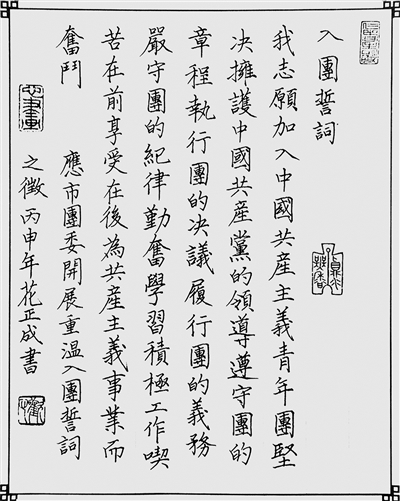 入團誓詞
我志願加入中國共産主義青年團堅
决擁護中國共産黨的領導遵守團的
章程執行團的决議履行團的義務
嚴守團的紀律勤奮學習積極工作喫
苦在前享受在後為共産主義事業而
奮鬥 應市團委開展重温入團誓詞
之徵丙申年花正成書